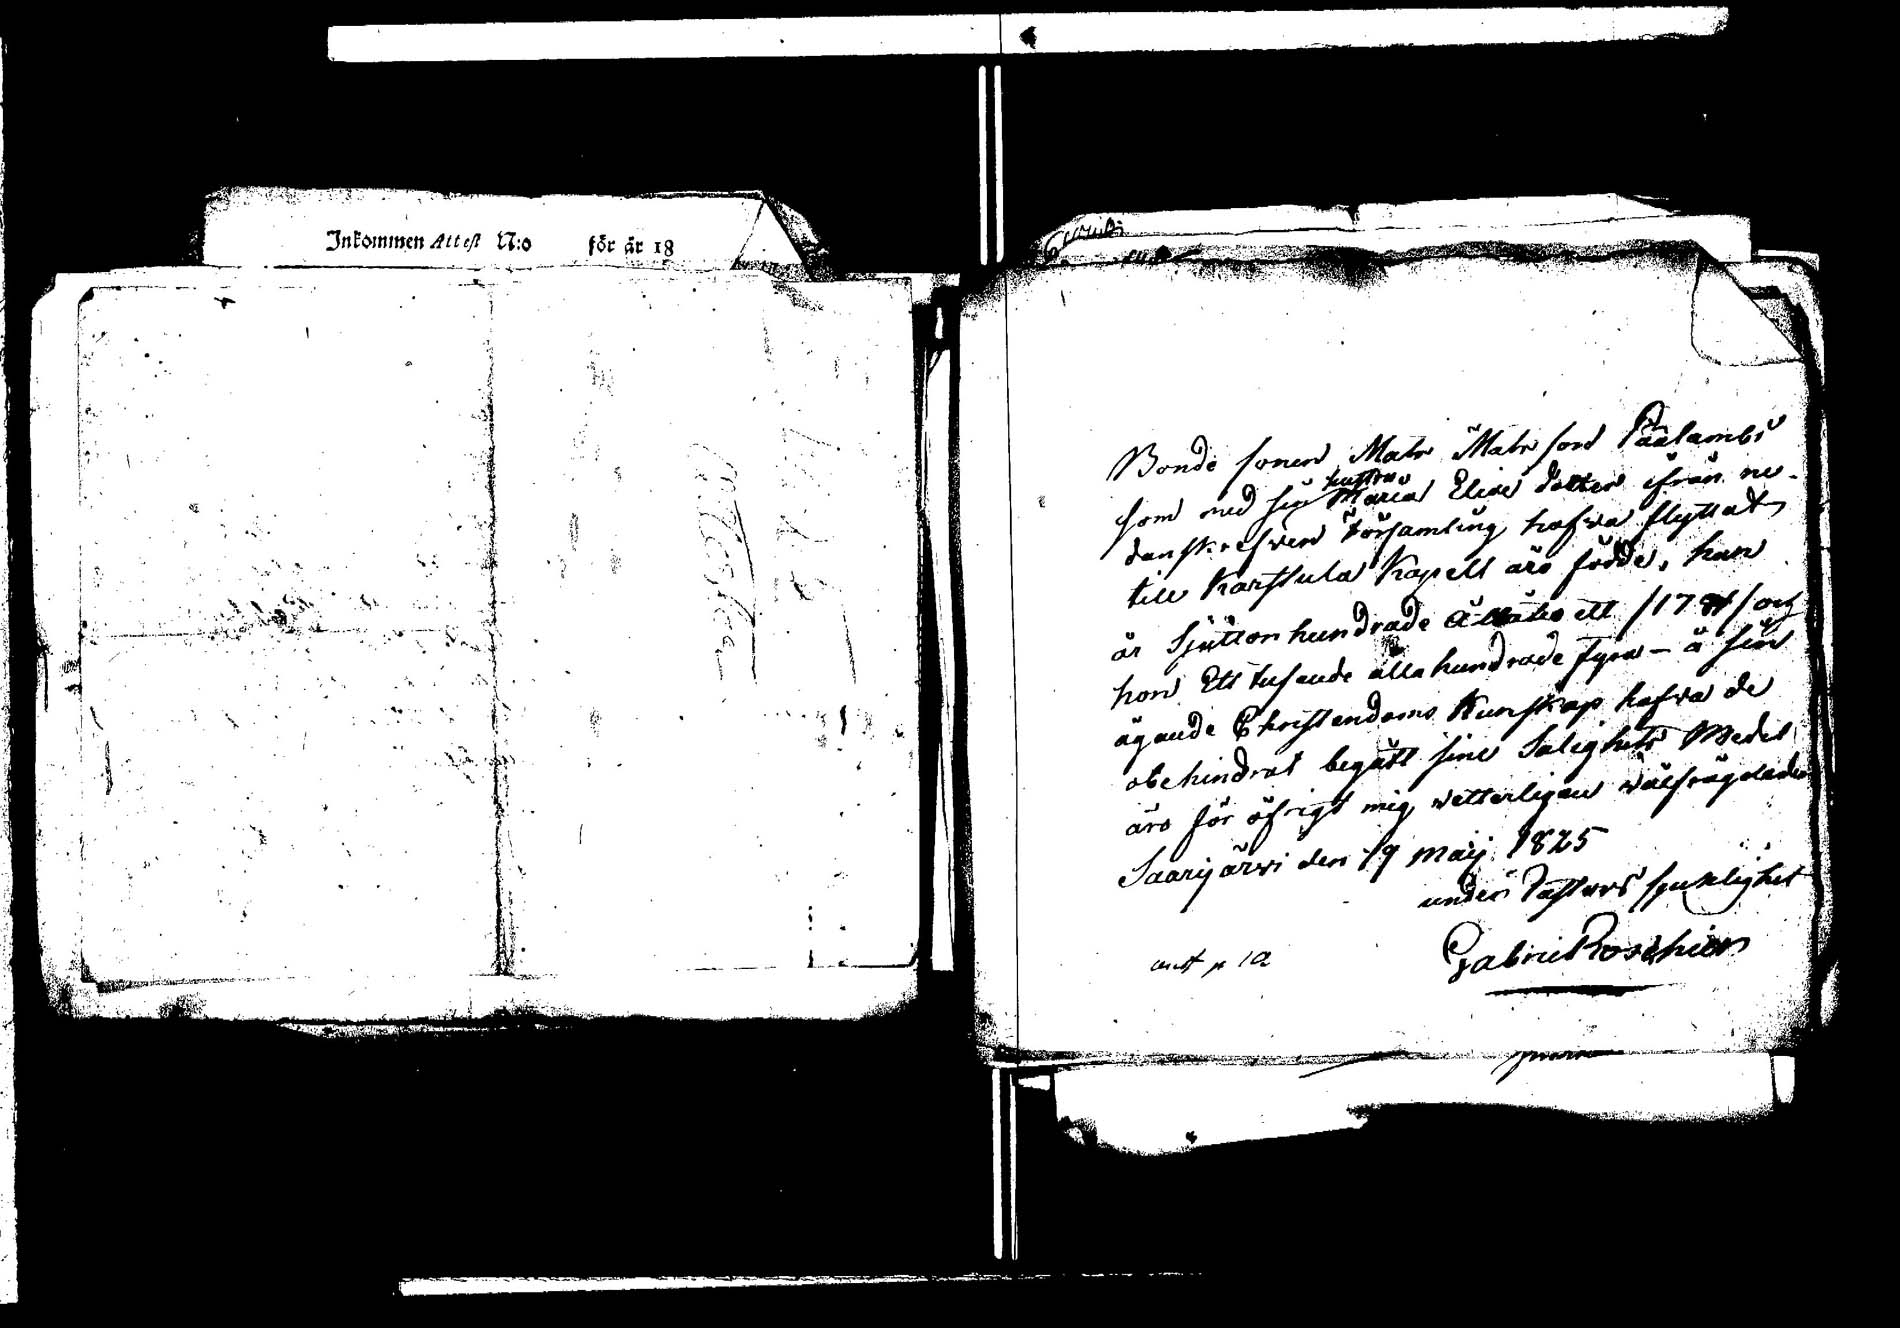 Inkommen Attest N:o för år 18
Attester
Bonde sonen Mats Mats son Päälambi
som med sin hustru Maria Elias dotter ifrån ne-
danskrefven Församling hafva flyttat
till Karstula Kapell äro födde, han
år Sjutton hundrade Åttatio ett /1781/ och
hon Ett tusande åtta hundrade fyra – å sin
ägande Christendoms Kunskap hafva de
obehindrat begått sine Salighets Medel
äro för öfrigt mig vetterligen välfrägdade
Saarijärvi den 19 Maij 1825
under Pastors sjuklighet
Gabriel Roschier
p 12